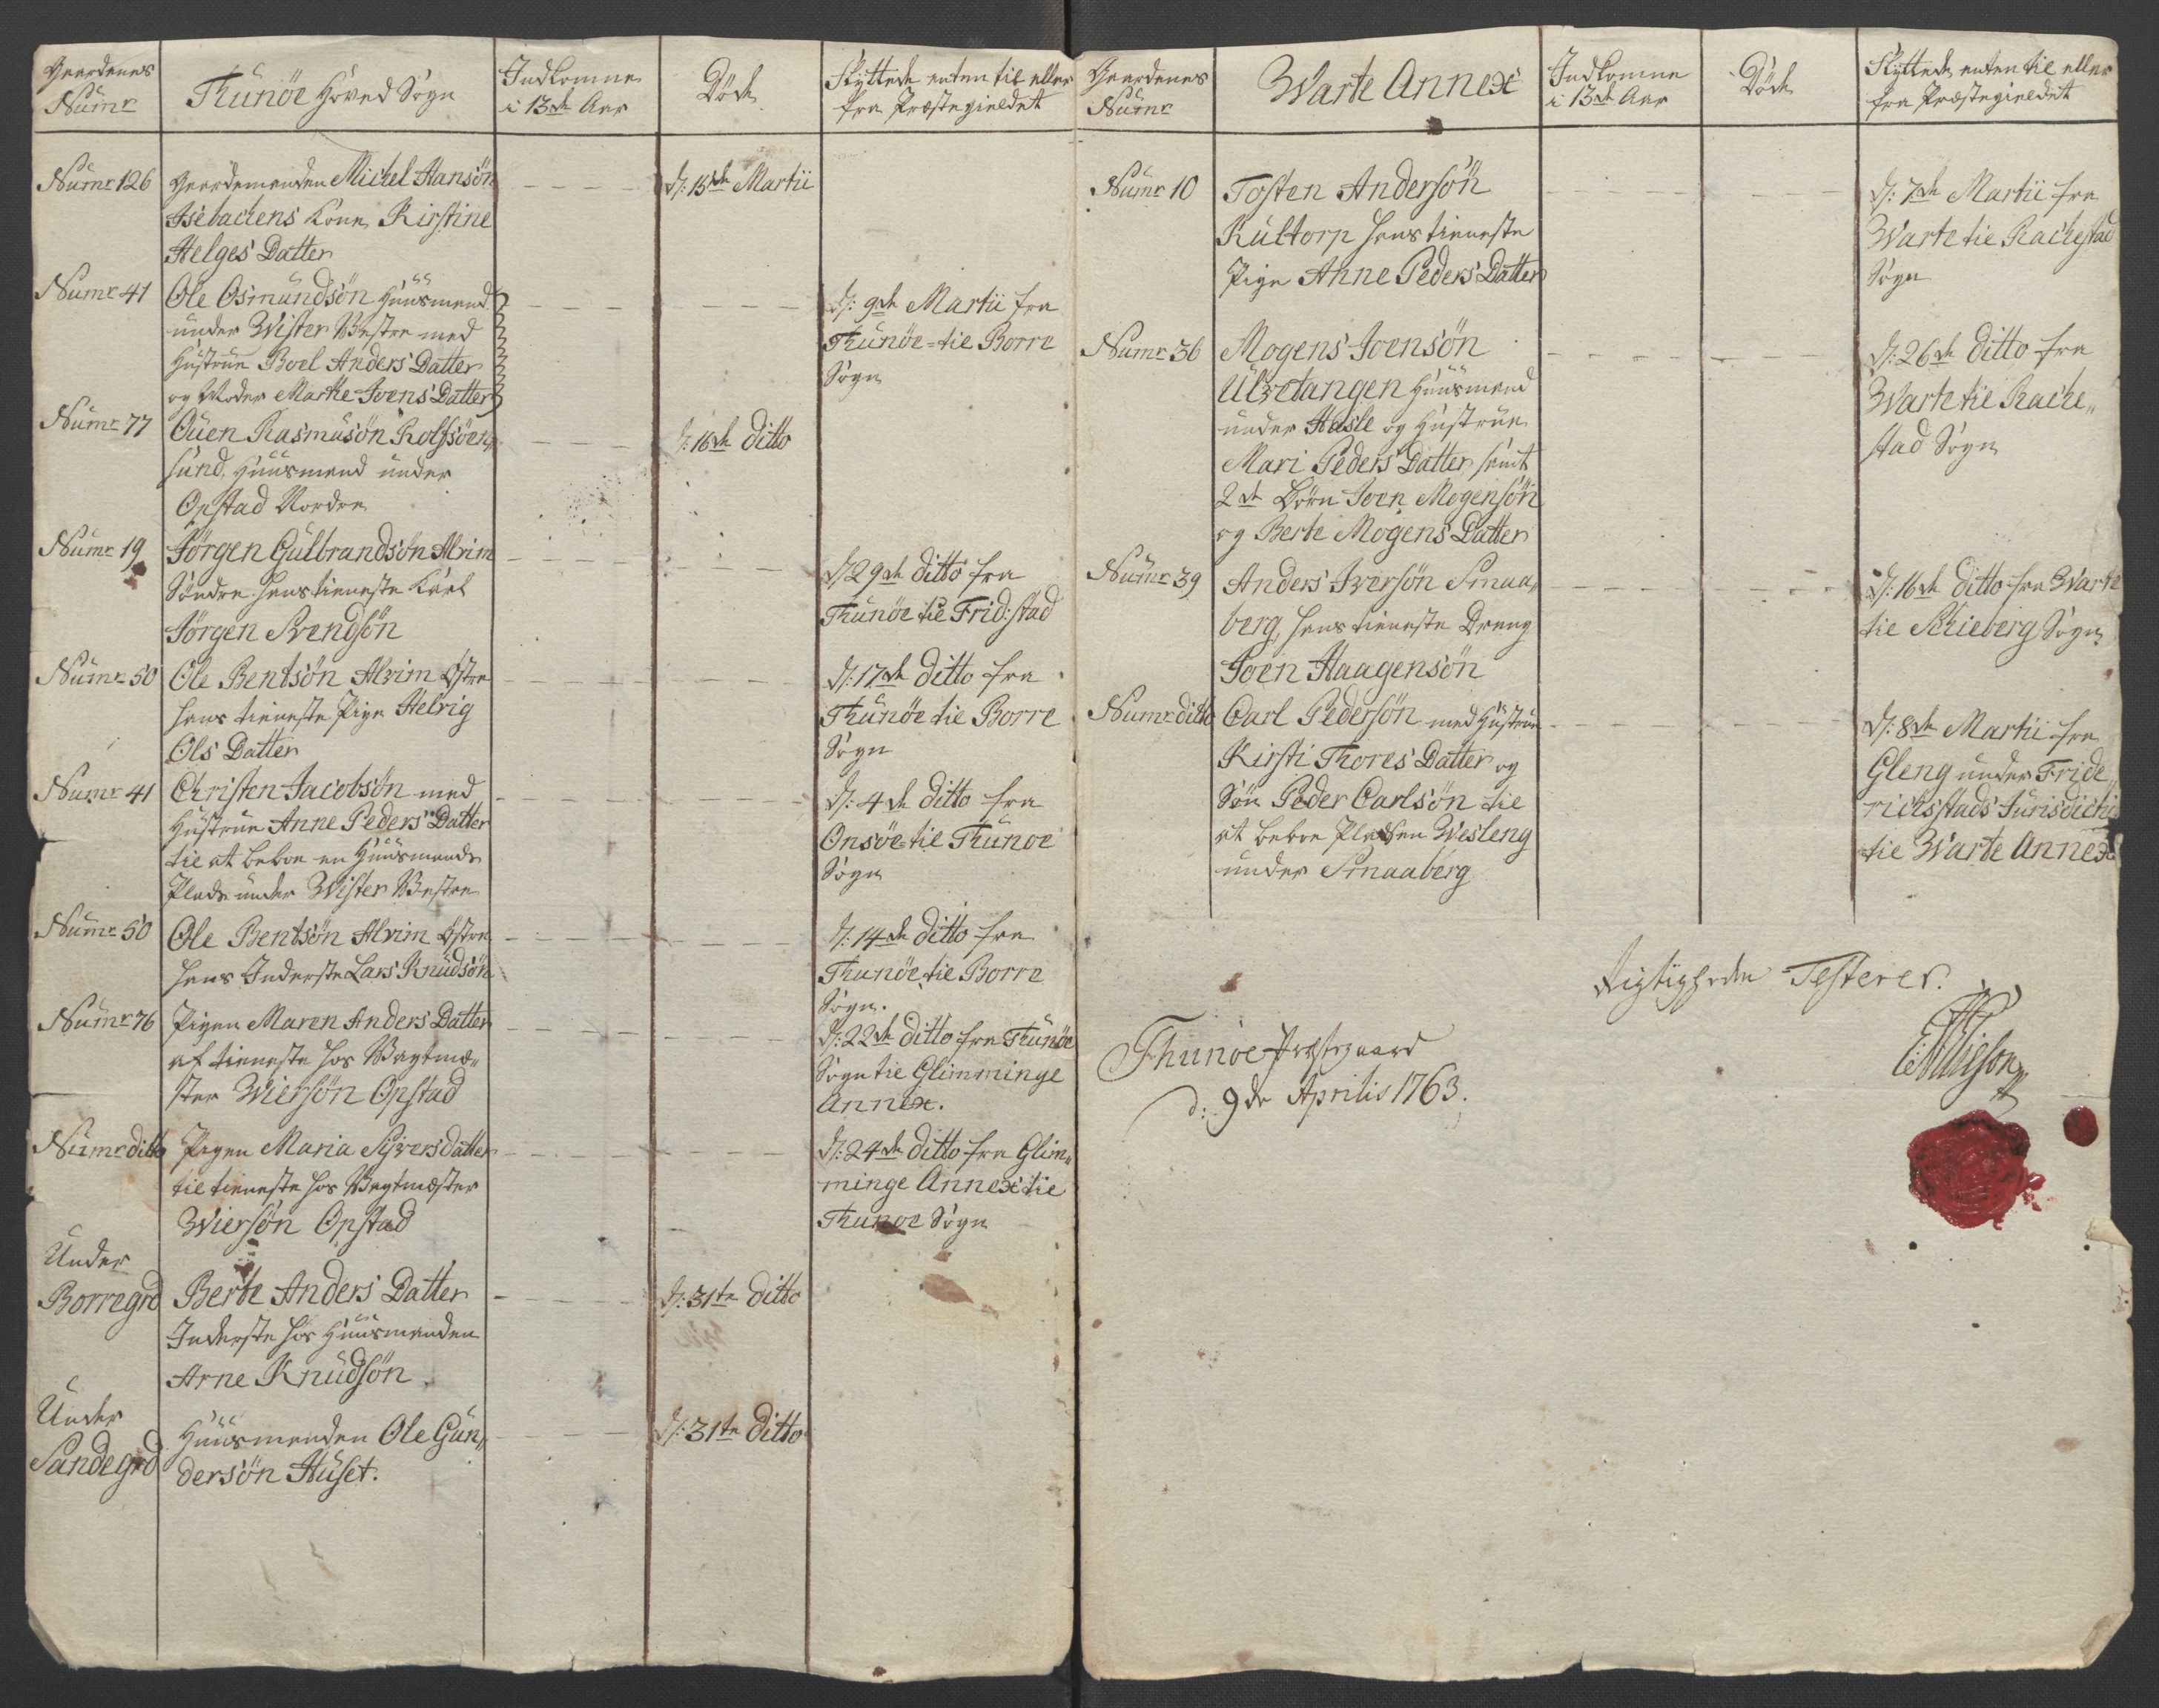 Gaardenes
Numr
Thunöe Hoved Sogn
Indkomne
i 13de Aar
Döde
Flyttede enten til eller
fra Præstegieldet
Numr 126
Gaardmanden Michel Hansön
Isebachens Kone Kirstine
Helges Datter
d: 15de Martii
Numr 41
Ole Osmundsön Huusmand
under Wister Westre med
Hustrue Boel Anders Datter
og Moder Marthe Joens Datter
d: 9de Martii fra
Thunöe til Borre
Sogn
Numr 77
Ouen Rasmusön Rolfsöen„
sund Huusmand under
Opstad Nordre
d: 16de ditto
Numr 19
Jörgen Gulbrandsön Alvim
Söndre hans tieneste Karl
Jörgen Svendsön
d: 29de ditto fra
Thunöe til Frid:stad
Numr 50
Ole Bentsön Alvim Östre
hans tieneste Pige Helvig
Ols Datter
d: 17de ditto fra
Thunöe til Borre
Sogn
Numr 41
Christen Jacobsön med
Hustrue Anne Peders Datter
til at beboe en Huusmands
Plads under Wister Westre
d: 4de ditto fra
Onsöe til Thunoe
Sogn
Numr 50
Ole Bentsön Alvim Östre
hans Inderste Lars Knudsön
d: 14de ditto fra
Thunöe til Borre
Sogn.
Numr 76
Pigen Maren Anders Datter
af tieneste hos Vagtmæ„
ster Wiersön Opstad
d: 22de ditto fra Thunöe
Sogn til Glimminge
Annex.
Numr ditto
Pigen Maria Syversdatter
til tieneste hos Vagtmæster
Wiersön Opstad
d: 24de ditto fra Glim„
minge Annex til
Thunoe Sogn
Under
Borregrd
Berthe Anders Datter
Inderste hos Huusmanden
Arne Knudsön
d: 31te ditto
Under
Sandegrd
Huusmanden Ole Gun„
dersön Huset.
d: 31te ditto
Gaardenes
Numr
Warte Annex
Indkomne
i 13de Aar
Döde
Flyttede enten til eller
fra Præstegieldet
Numr 10
Tosten Andersön
Kultorp hans tieneste
Pige Anne Peders Datter
d: 7de Martii fra
Warte til Rachestad
Sogn
Numr 36
Mogens Joensön
Ulvetangen Huusmand
under Hasle og Hustrue
Mari Peders Datter samt
2de Börn Joen Mogensön
og Berte Mogens Datter
d: 26de ditto fra
Warte til Rache„
stad Sogn
Numr 39
Anders Iversön Smaa„
berg, hans tieneste Dreng
Joen Haagensön
d: 16de ditto fra Warte
til Schieberg Sogn
Numr ditto
Carl Pedersön med Hustrue
Kirsti Thores Datter og
Sön Peder Carlsön til
at beboe Pladsen Wesleng
under Smaaberg
d: 8de Martii fra
Gleng under Fride„
richsstads Jurisdictio
til Warte Annex
Rigtigheden Testerer.
Thunöe Præstegaard
d: 9de Aprilis 1763.